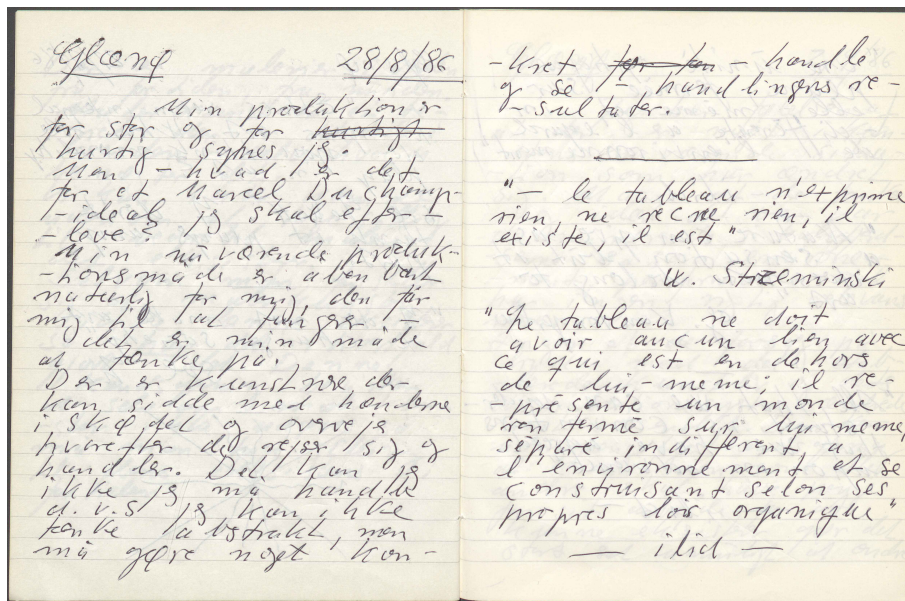 Glenø 28/8/86
Min produktion er
for stor og for hurtigt
hurtig synes jeg.
Men – hvad er det
for et Marcel Duchamp-
-ideal jeg skal efter-
-leve?
Min nuværende produk-
-tionsmåde er åbenbart
naturlig for mig, den får
mig til at fungere –
det er min måde
at tænke på.
Der er kunstnere, der
kan sidde med hænderne
i skødet og overveje
hvorefter de rejser sig og
handler. Det kan jeg
ikke jeg må handle
d.v.s jeg kan ikke
tænke abstrakt, men
må gøre noget kon-
-kret for en – handle
og se – handlingens re-
-sultater.
"– le tableau n'exprime
rien, ne recne rien, il
existe, il est"
W. Strzeminski
"Le tableau ne doit
avoir aucun lien avec
ce qui est en dehors
de lui-meme; il re-
-présente un monde
renfermé sur lui meme,
séparé indifférent a
l'environnement et se
construisant selon ses
propres lois organique"
— ibid —